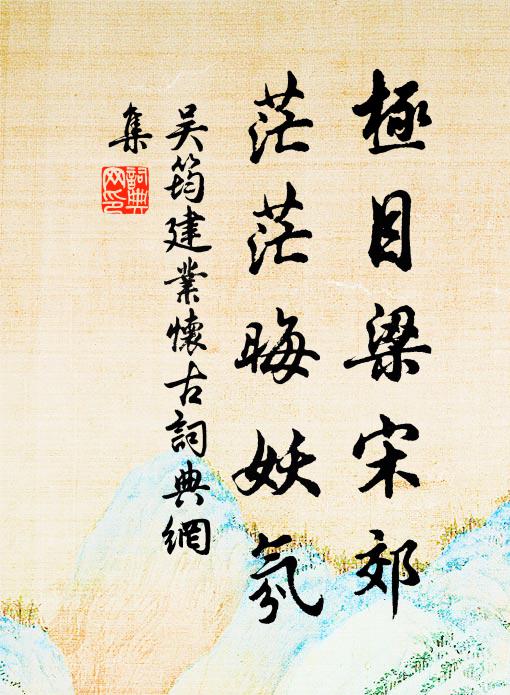 極目梁宋郊
茫茫晦妖氛
吳筠建業懷古詞典網
集
詞典
网印